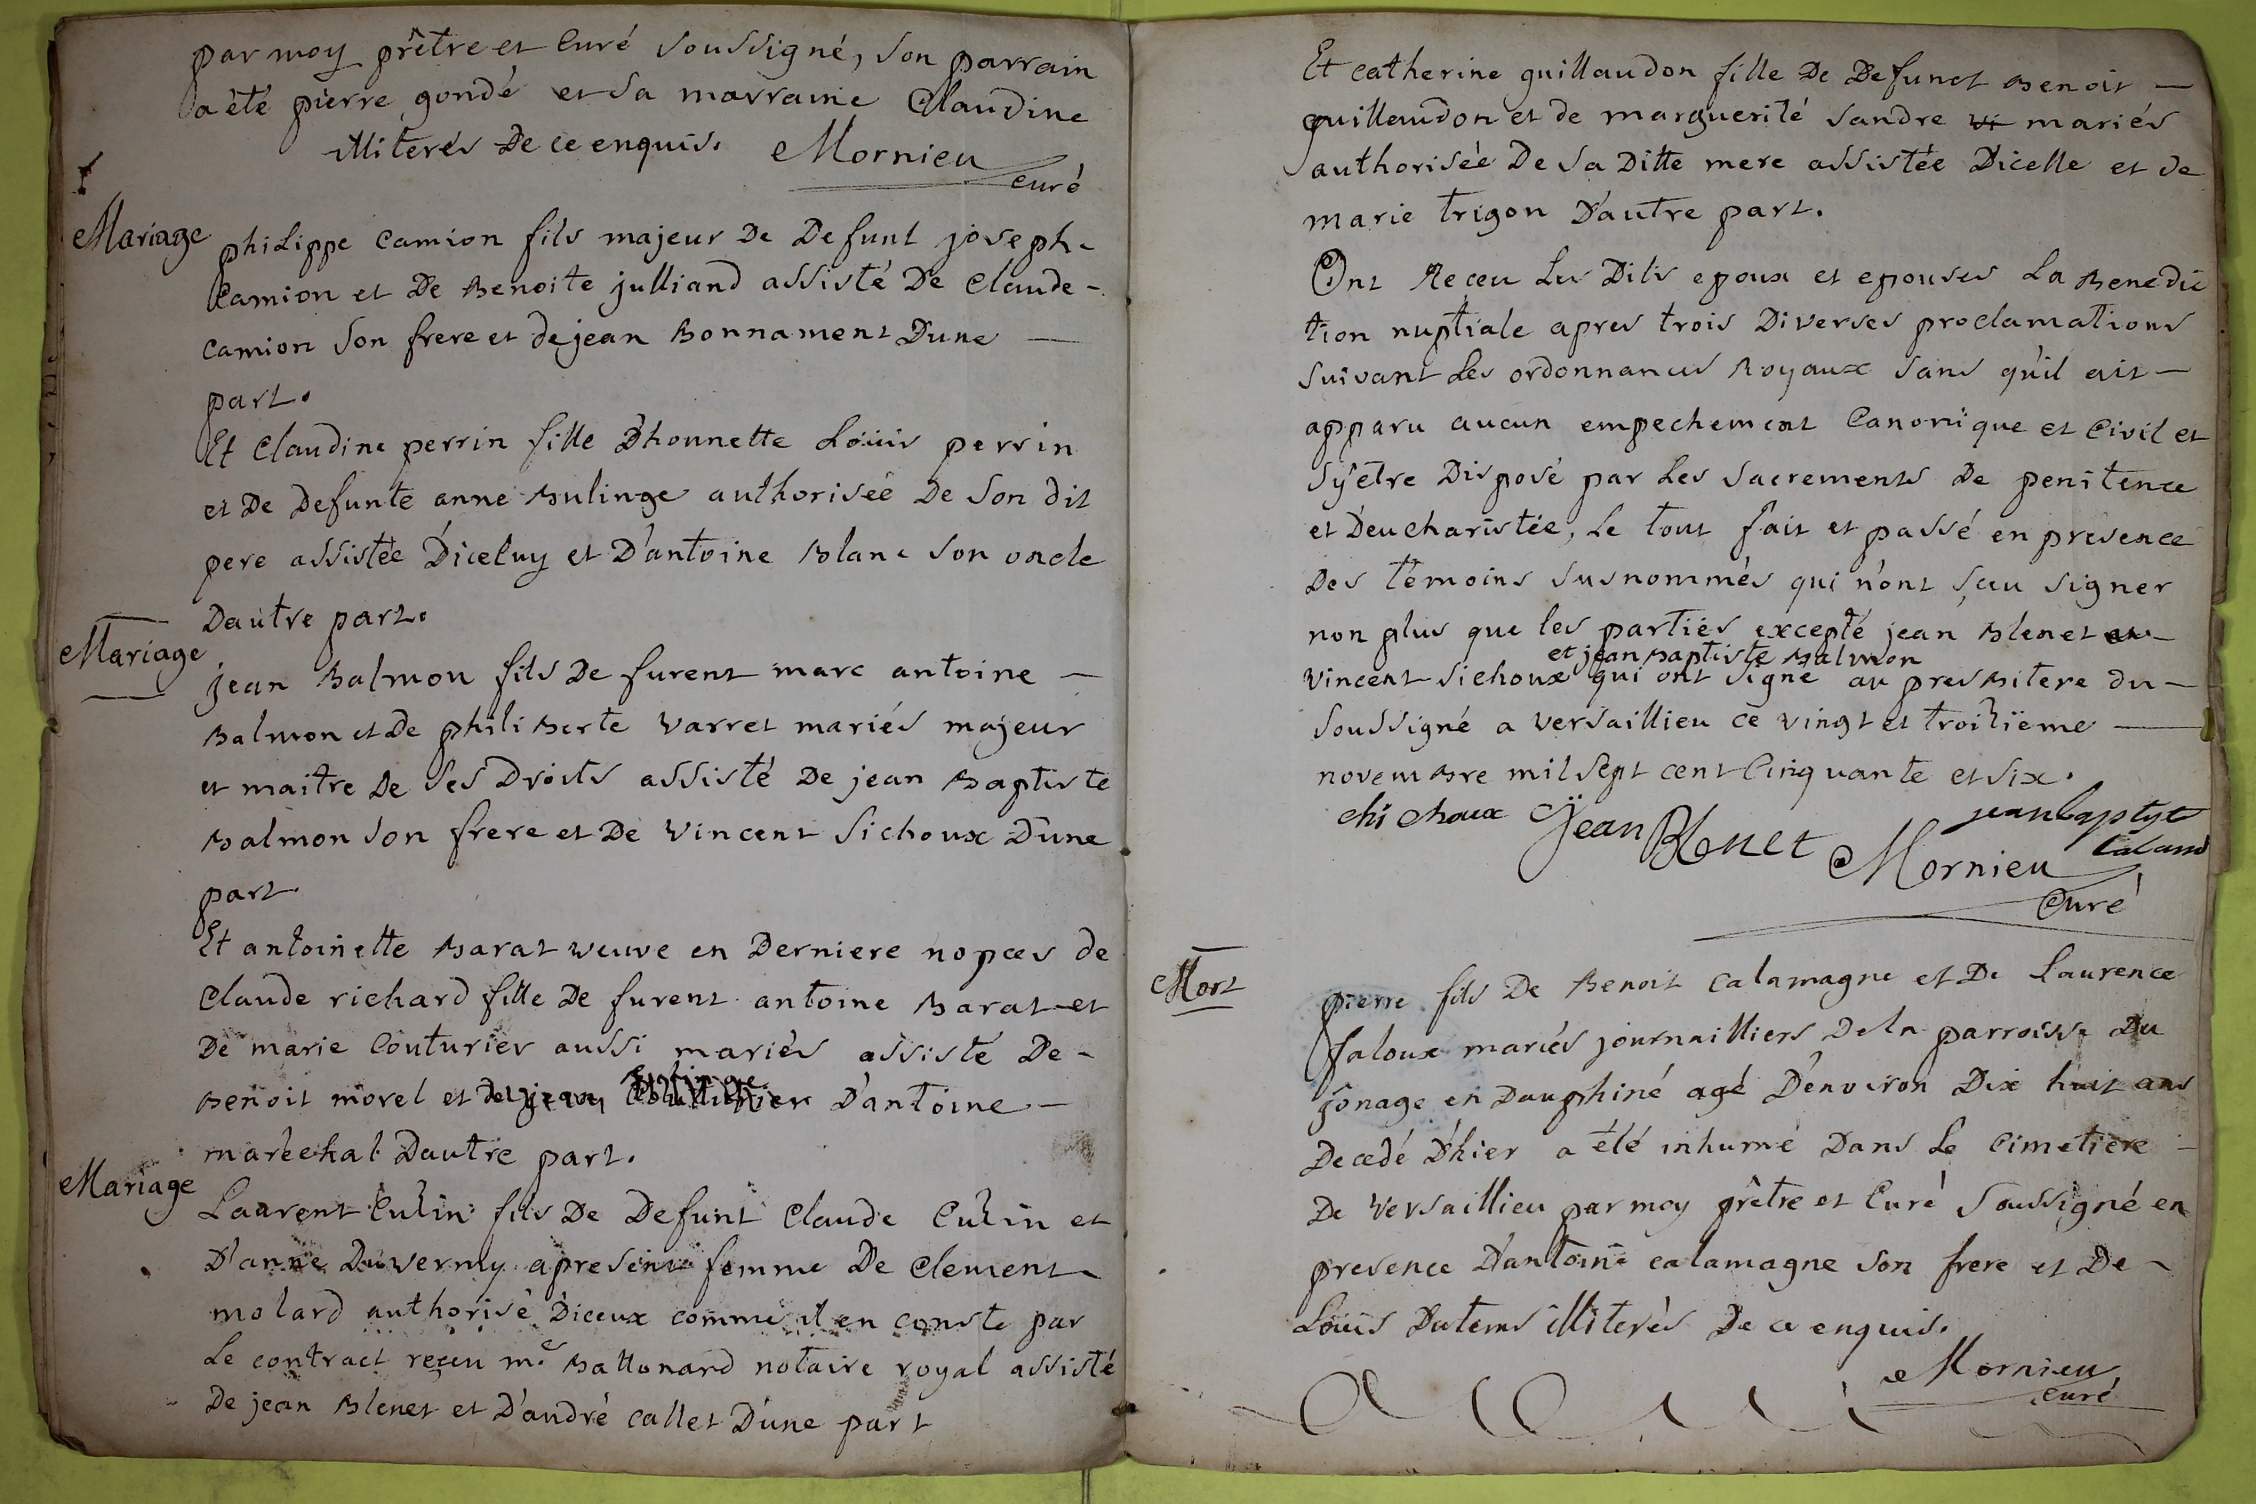 par moy prêtre et Curé soussigné, son parrain
a été pierre gondé et sa marraine Claudine
illiterés De ce enquis. Mornieu
curé
Mariage
philippe camion fils majeur De Defunt joseph
camion et De Benoite julliand assisté De Claude
camion son frere et de jean Bonnament D'une
part.
Et Claudine perrin fille D'honnette Loüis perrin
et De Defunte anne Bulinge authorisée De son dit
pere assistée D'iceluy et D'antoine Blanc son oncle
Dautre part.
Mariage
jean Balmon fils De furent marc antoine
Balmon et De philiberte Varret mariés majeur
et maitre De ses Droits assisté De jean Baptiste
Balmon son frere et De Vincent Sichoux D'une
part
Et antoinette Barat veuve en Derniere nopces de
Claude richard fille De furent antoine Barat et
De marie Couturier aussi mariés assisté De
Benoit morel et D'antoine
maréchal Dautre part.
Mariage
Laurent Cuzin fils De Defunt Claude Cuzin et
D'anne Duverny apresent femme De Clement
molard authorisé D'iceux comme il en conste par
Le contract reçeu me Ballonard notaire royal assisté
De jean Blenet et D'andré callet D'une part
Et catherine guillaudon fille De Defunct Benoit
guillaudon et de marguerite sandre vi mariés
authorisée De sa Ditte mere assistée D'icelle et de
marie trigon D'autre part.
Ont Receu Les Dits epoux et epouses La Benedic
tion nuptiale apres trois Diverses proclamations
suivant Les ordonnances Royaux sans qu'il ait
apparu aucun empechement Canonique et Civil et
s'y être Disposé par Les sacrements De penitence
et D'eucharistie, Le tout fait et passé en presence
Des témoins susnommés qui n'ont sçeu signer
non plus que les parties excepté jean Blenet
et jean Baptiste Balmon
Vincent Sichoux qui ont signé au presbitere du
soussigné a Versaillieu ce vingt et troizième
novembre mil sept cent Cinquante et six.
chichoux Jean Blenet jean baptyt
Mornieu
Curé
Mort
pierre fils De Benoit calamagne et De Laurence
faloux mariés journailliers De la parroisse Du
jonage en Dauphiné agé D'environ Dix huit ans
Decedé D'hier a été inhumé Dans Le Cimetiere
De Versaillieu par moy prêtre et Curé soussigné en
presence D'antoine calamagne son frere et De
Loüis Dutems illiterés De ce enquis.
Mornieu
curé